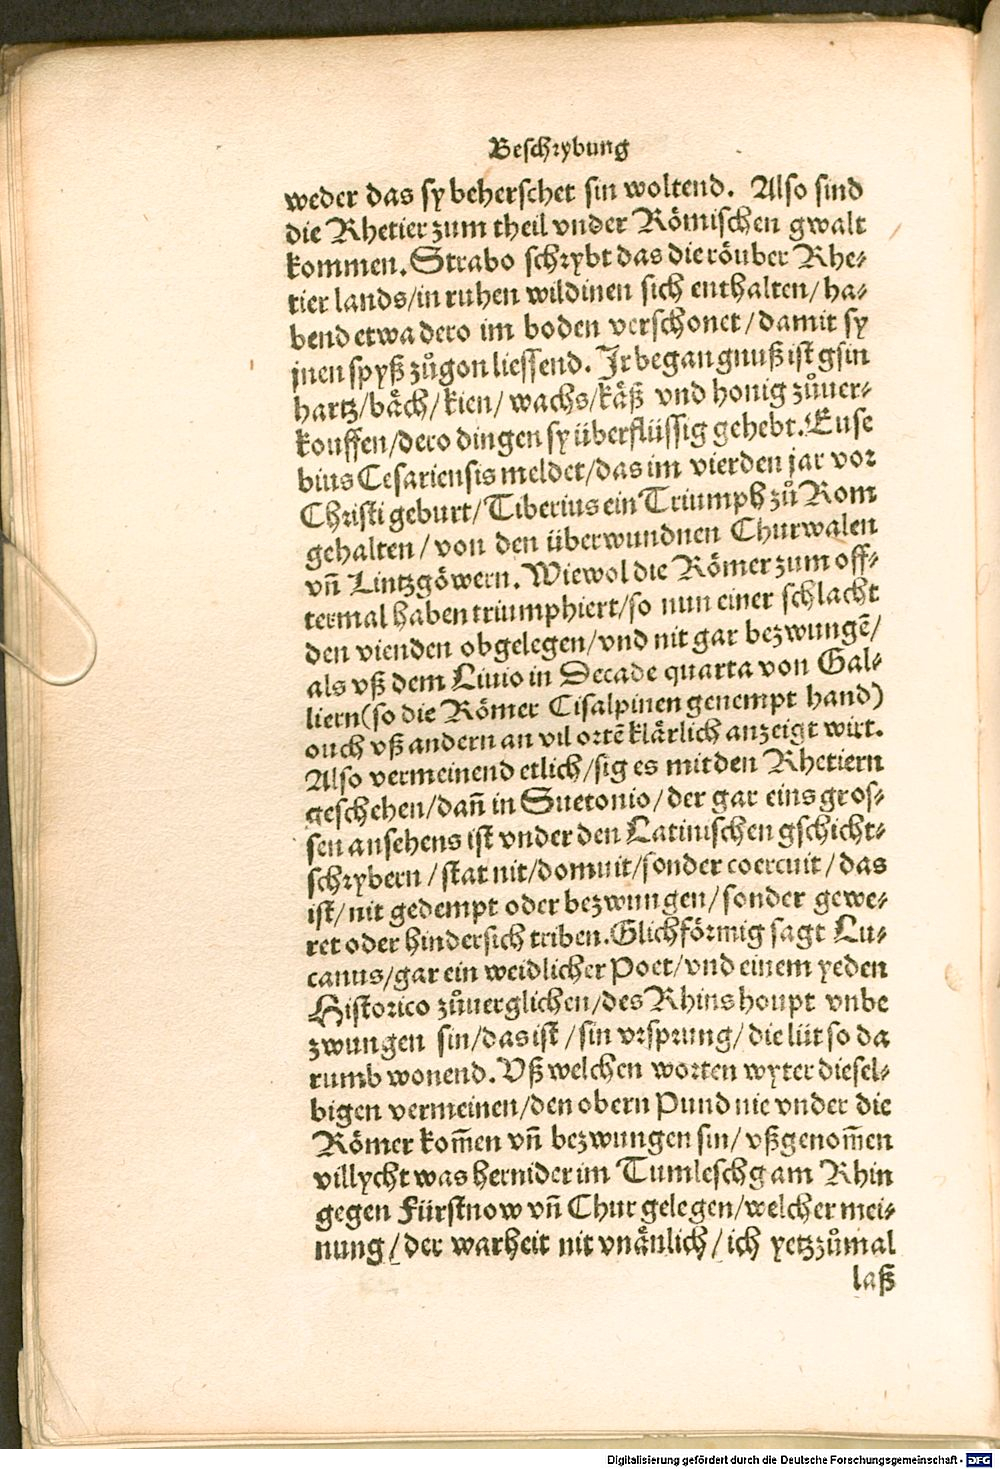 Beschrybung
weder das sy beherschet sin woltend. Also sind
die Rhetier zum theil vnder Römischen gwalt
kommen. Strabo schrybt das die röuber Rhe-
tier lands/in ruhen wildinen sich enthalten/ ha-
bend etwa dero im boden verschonet/damit sy
jnen spyß zůgon liessend. Jr begangnuß ist gsin
hartz/bäch/kien/ wachs/käß vnd honig zůuer-
kouffen/dero dingen sy überflüssig gehebt. Euse
bius Cesariensis meldet/das im vierden jar vor
Christi geburt/Tiberius ein Triumph zů Rom
gehalten/von den überwundnen Churwalen
vñ Lintzgöwern. Wiewol die Römer zum off-
termal haben triumphiert/so nun einer schlacht
den vienden obgelegen/vnd nit gar bezwungẽ/
als vß dem Liuio in Decade quarta von Gal-
liern(so die Römer Cisalpinen genempt hand)
ouch vß andern an vil ortẽ klärlich anzeigt wirt.
Also vermeinend etlich/sig es mit den Rhetiern
geschehen/dañ in Suetonio/der gar eins gros-
sen ansehens ist vnder den Latinischen gschicht-
schrybern/stat nit/domuit/sonder coercuit/das
ist/nit gedempt oder bezwungen/sonder gewe-
ret oder hindersich triben. Glichförmig sagt Lu-
canus/gar ein weidlicher Poet/vnd einem yeden
Historico zůuerglichen/des Rhins houpt vnbe
zwungen sin/das ist/sin vrsprung/die lüt so da
rumb wonend. Vß welchen worten wyter diesel-
bigen vermeinen/den obern Pund nie vnder die
Römer kom̃en vñ bezwungen sin/vßgenom̃en
villycht was hernider im Tumleschg am Rhin
gegen Fürstnow vñ Chur gelegen/welcher mei-
nung/der warheit nit vnänlich/ich yetzzůmal
laß
Digitalisierung gefördert durch die Deutsche Forschungsgemeinschaft - DFG